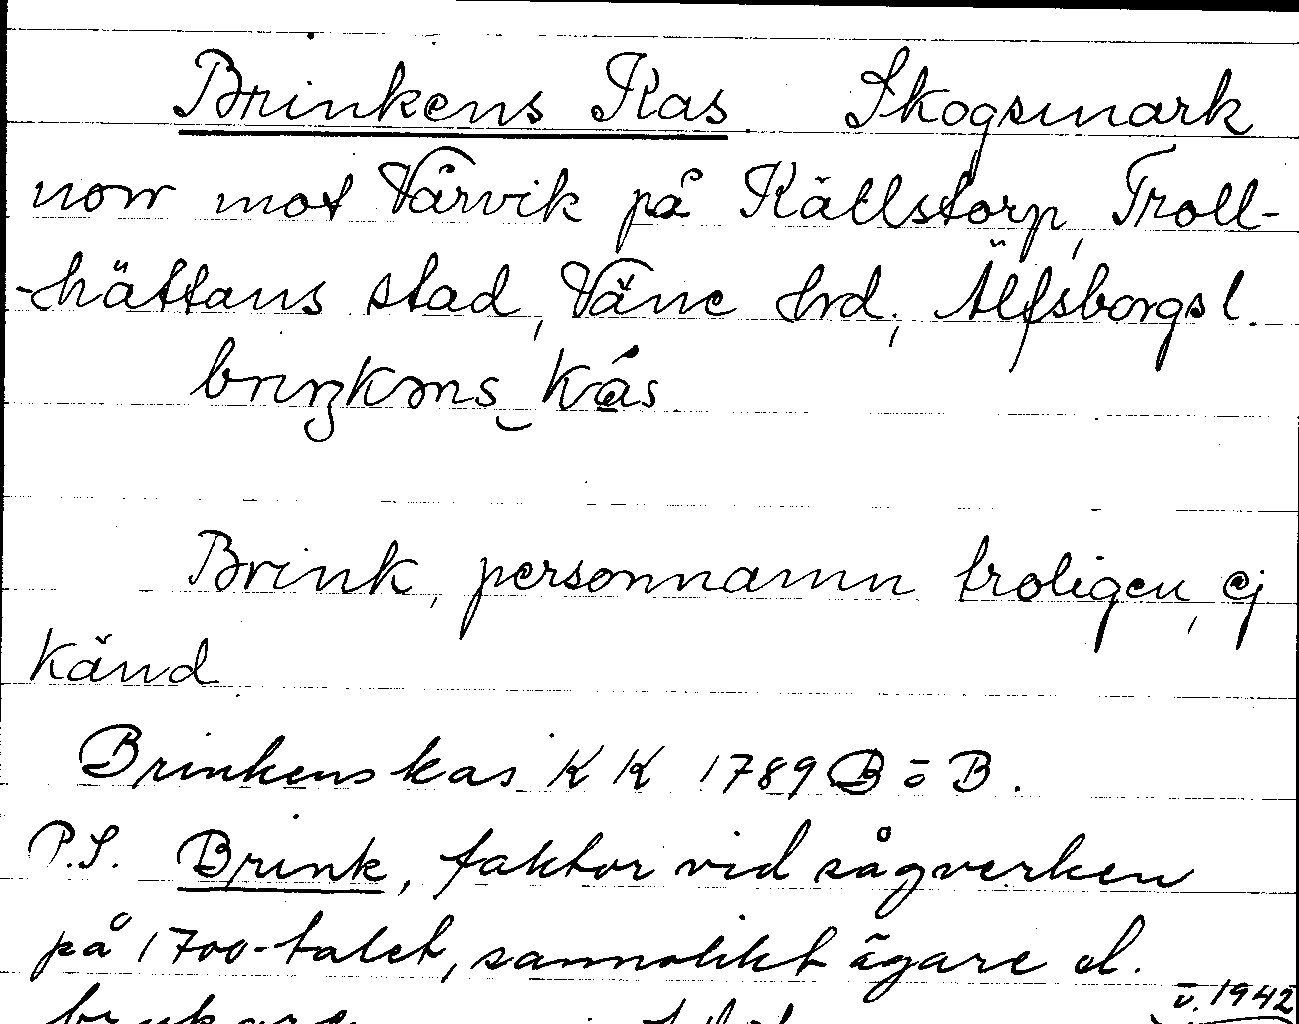 Brinkens Kas. Skogsmark
norr mot Vårvik på Källstorp, Troll-
-hättans stad, Väne hrd, Älfsborgs l.
Brink, personnamn troligen, ej
känd.
Brinkens kas KK 1789 B ō B.
P.S. Brink, faktor vid sågverken
på 1700-talet, sannolikt ägare el.
v. 1942